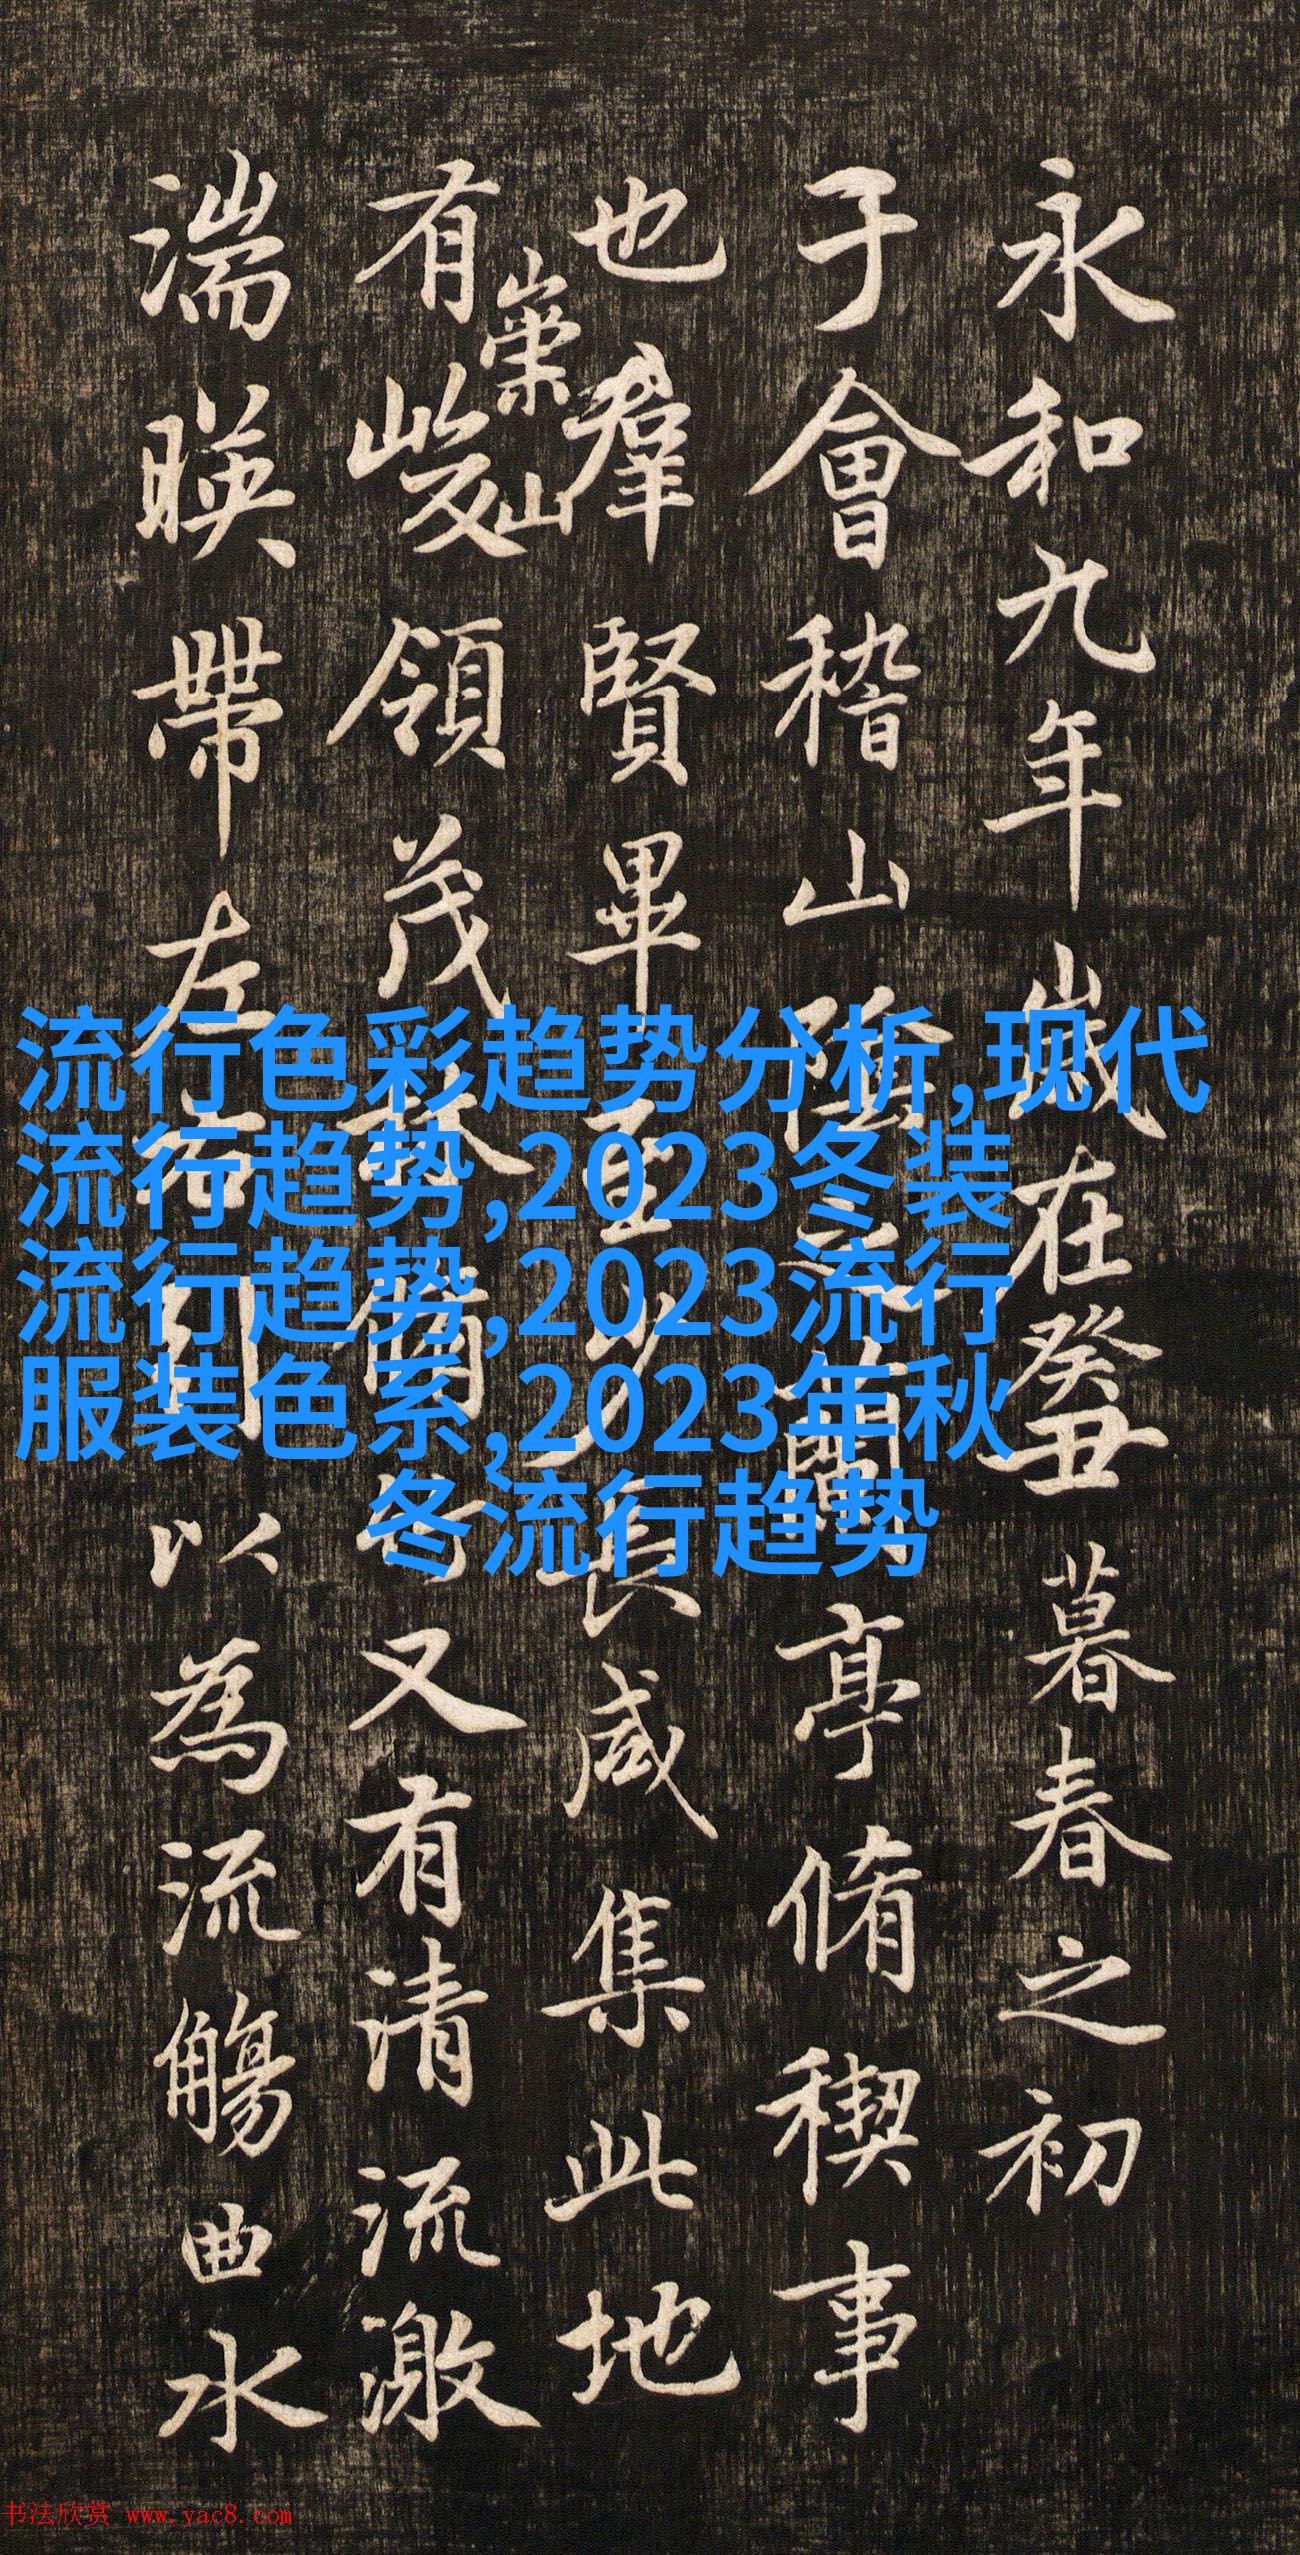 永和九年歲在癸丑暮春之初
于會稽山陰之蘭亭脩稧事
也羣賢畢至少長咸集此地
有崇山峻領茂林脩竹又有清流激
湍暎帶左右引以為流觴曲水
流行色彩趋势分析,现代
流行趋势,2023冬装
流行趋势,2023流行
服装色系,2023年秋
冬流行趋势
书法欣赏 www.yac8.com